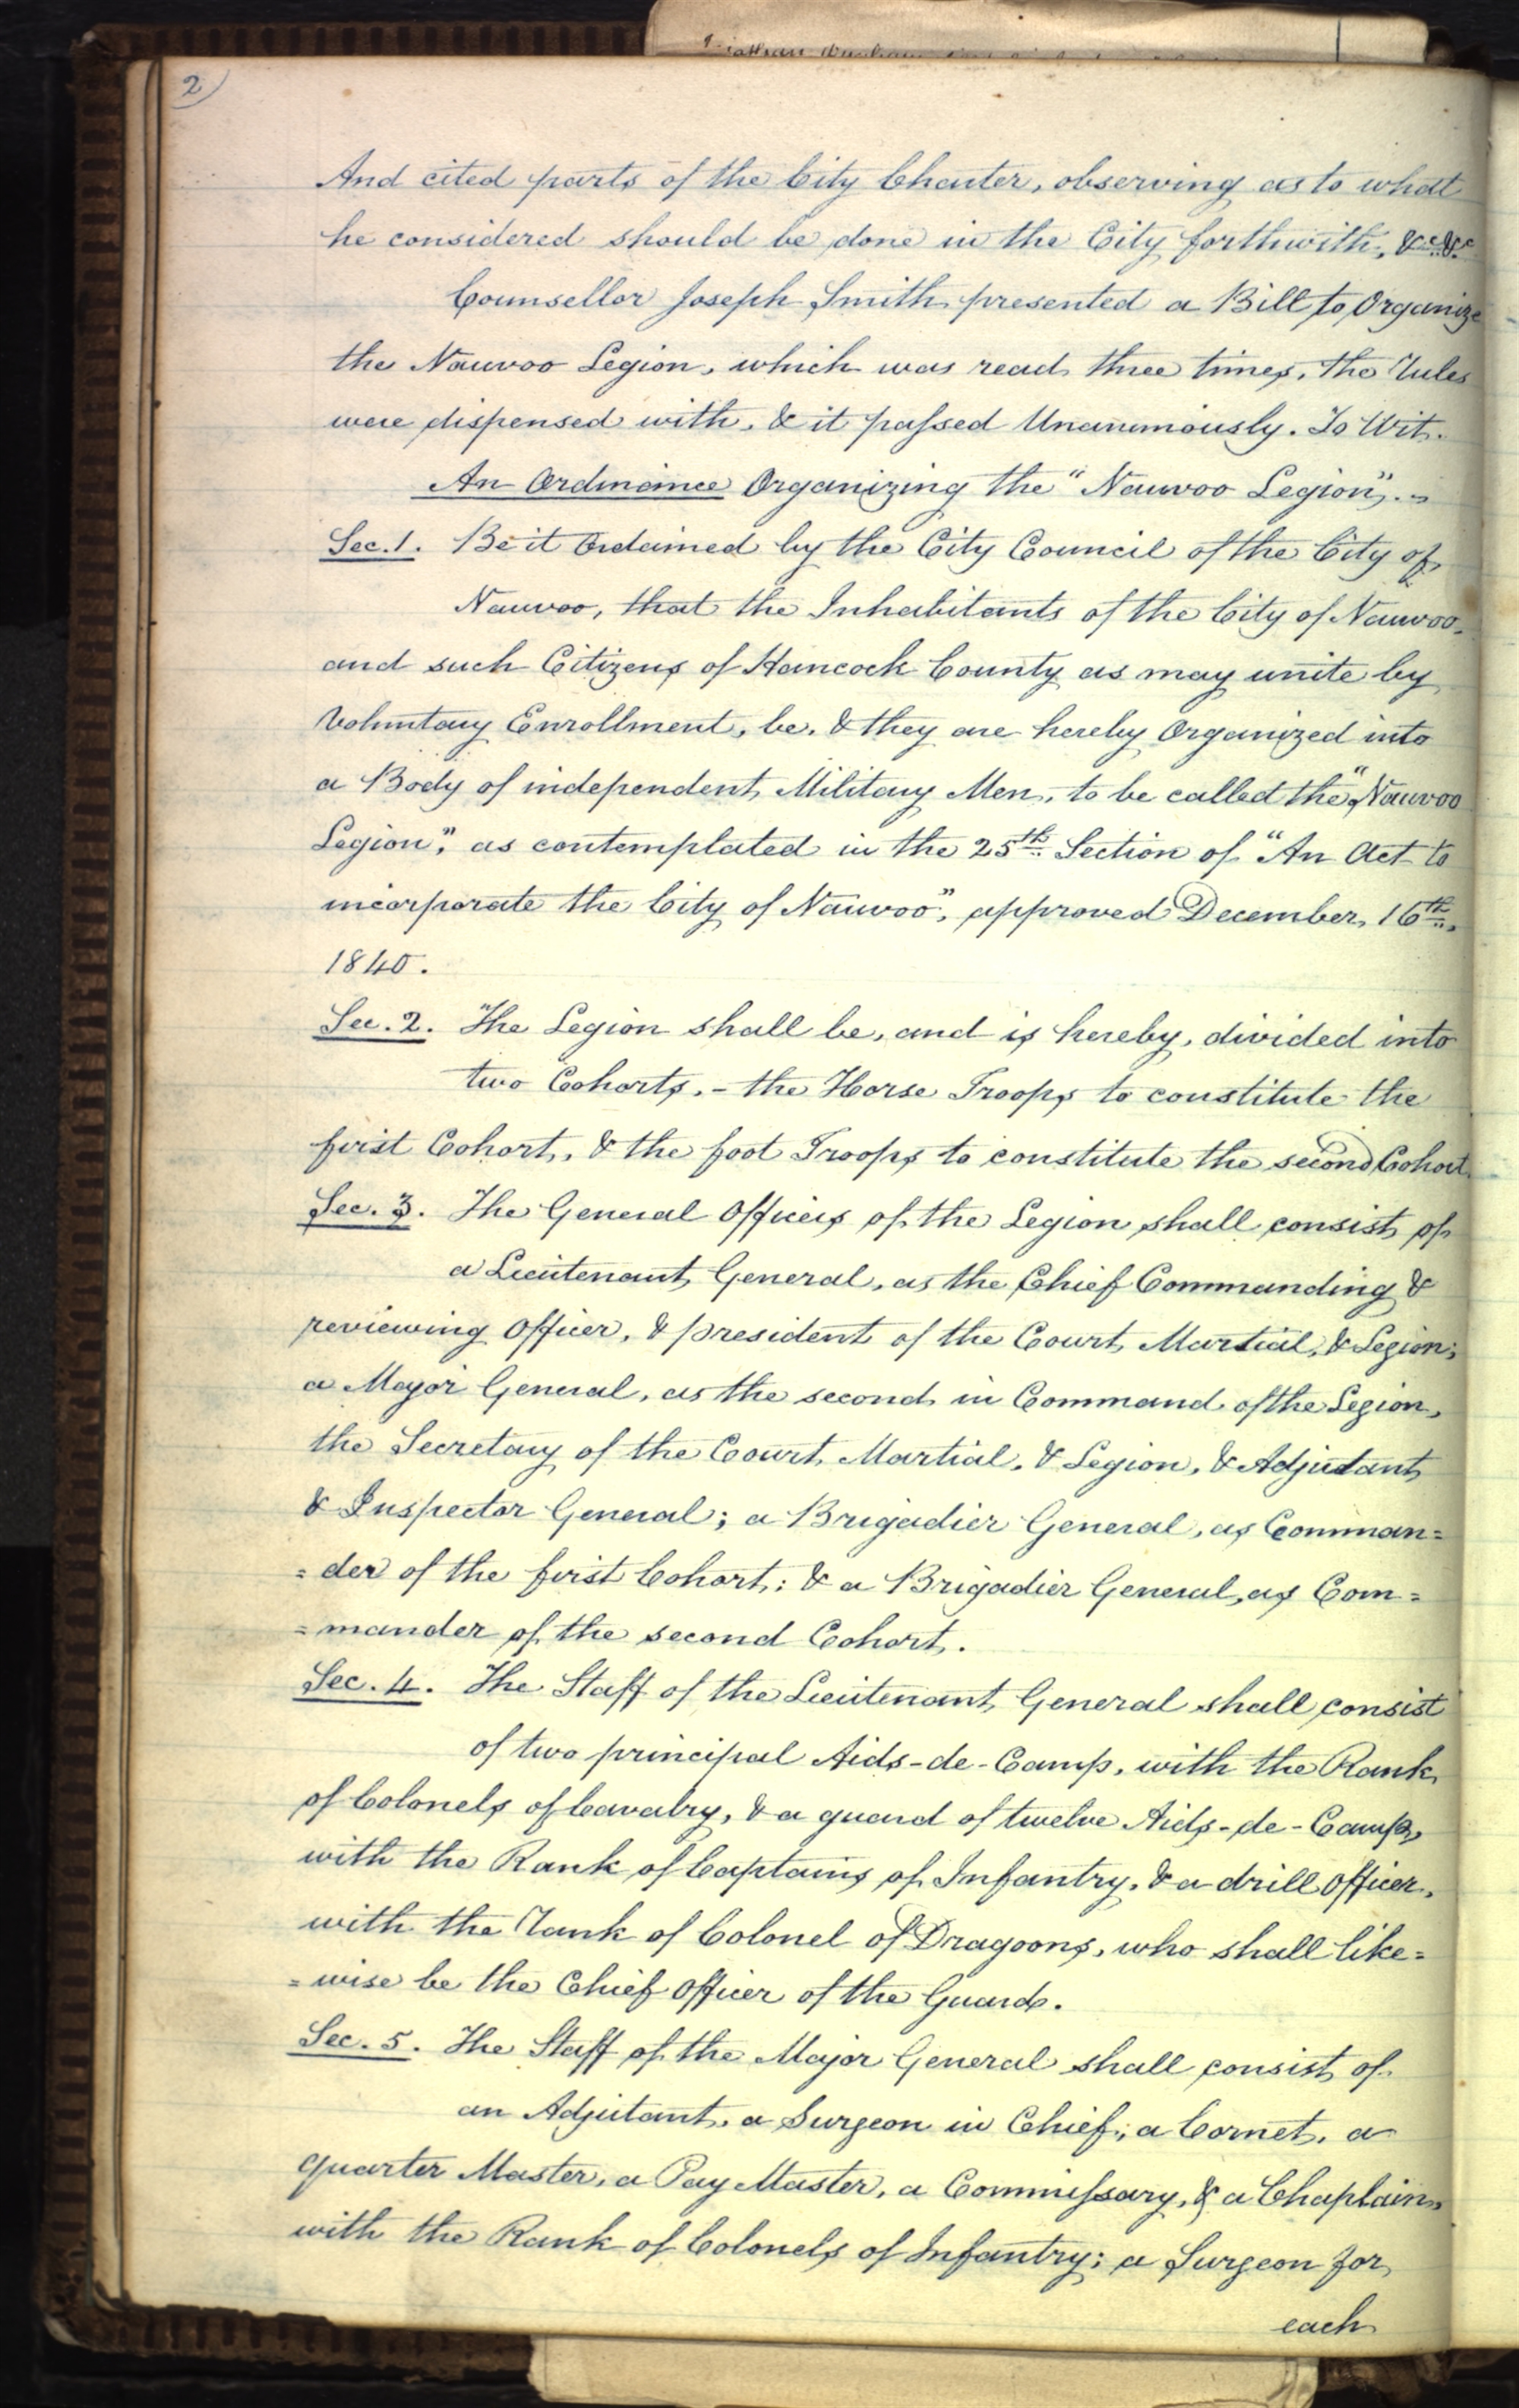 2
And cited parts of the City Charter, observing as to what
he considered should be done in the City forthwith, &c. &c.
Counsellor Joseph Smith presented a Bill to Organize
the Nauvoo Legion, which was read three times, the rules
were dispensed with, & it passed Unanimously. To Wit.
An Ordinance Organizing the "Nauvoo Legion".
Sec. 1. Be it Ordained by the City Council of the City of
Nauvoo, that the Inhabitants of the City of Nauvoo,
and such Citizens of Hancock County as may unite by
Voluntary Enrollment, be, & they are hereby Organized into
a Body of independent Military Men, to be called the "Nauvoo
Legion", as contemplated in the 25th Section of "An Act to
incorporate the City of Nauvoo", approved December, 16th,
1840.
Sec. 2. The Legion shall be, and is hereby, divided into
two Cohorts, - the Horse Troops to constitute the
first Cohort, & the foot Troops to constitute the second Cohort.
Sec. 3. The General Officers of the Legion shall consist of
a Lieutenant General, as the Chief Commanding &
reviewing Officer, & president of the Court Martial, & Legion;
a Major General, as the second in Command of the Legion,
the Secretary of the Court Martial, & Legion, & Adjutant
& Inspector General; a Brigadier General, as Comman=
=der of the first Cohort; & a Brigadier General, as Com=
=mander of the second Cohort.
Sec. 4. The Staff of the Lieutenant General shall consist
of two principal Aids-de-Camp, with the Rank
of Colonels of Cavalry, & a guard of twelve Aids-de-Camp,
with the Rank of Captains of Infantry, & a drill Officer,
with the rank of Colonel of Dragoons, who shall like=
=wise be the Chief Officer of the Guard.
Sec. 5. The Staff of the Major General shall consist of
an Adjutant, a Surgeon in Chief, a Cornet, a
quarter Master, a Pay Master, a Commissary, & a Chaplain,
with the Rank of Colonels of Infantry; a Surgeon for
each